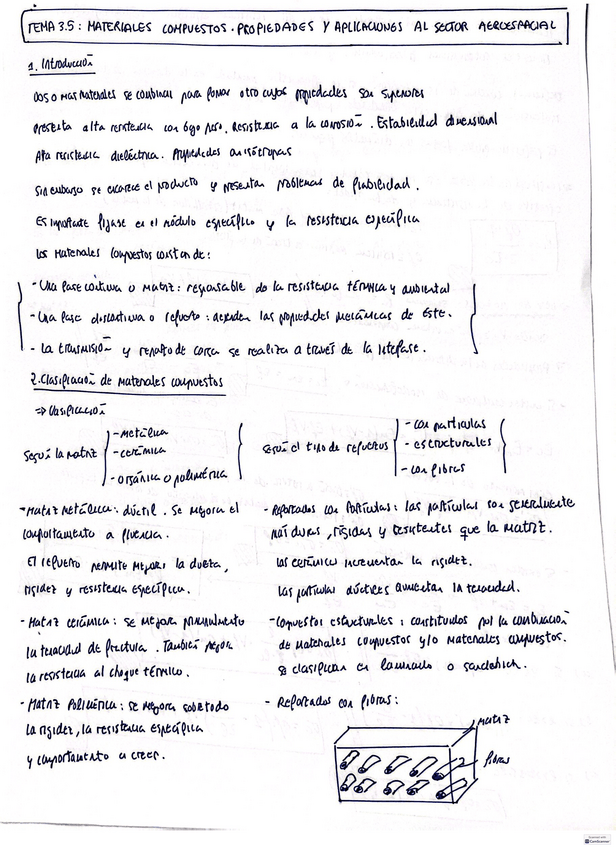 TEMA 3.5: MATERIALES COMPUESTOS. PROPIEDADES Y APLICACIONES AL SECTOR AEROESPACIAL
1. Introducción
Dos o más materiales se combinan para formar otro cuyas propiedades son superiores
Presenta alta resistencia con bajo peso. Resistencia a la corrosión. Estabilidad dimensional
Alta resistencia dieléctrica. Propiedades anisótropas
Sin embargo se encarece el producto y presentan problemas de fiabilidad.
Es importante fijarse en el módulo específico y la resistencia específica
Los materiales compuestos constan de:
- Una fase continua o matriz: responsable de la resistencia térmica y ambiental
- Una fase discontinua o refuerzo: dependen las propiedades mecánicas de éste.
- La transmisión y reparto de carga se realiza a través de la interfase.
2. Clasificación de materiales compuestos
⇒ Clasificación
Según la matriz
- metálica
- cerámica
- orgánica o polimérica
Según el tipo de refuerzos
- con partículas
- estructurales
- con fibras
- Matriz metálica: dúctil. Se mejora el
comportamiento a fluencia.
El refuerzo permite mejorar la dureza,
rigidez y resistencia específica.
- Matriz cerámica: se mejora principalmente
la tenacidad de fractura. También mejora
la resistencia al choque térmico.
- Matriz Polimérica: se mejora sobretodo
la rigidez, la resistencia específica
y comportamiento a creep.
- Reforzados con partículas: las partículas son generalmente
más duras, rígidas y resistentes que la matriz.
Las cerámicas incrementan la rigidez.
Las partículas dúctiles aumentan la tenacidad.
- Compuestos estructurales: constituidos por la combinación
de materiales compuestos y/o materiales compuestos.
Se clasifican en laminado o sandwich.
- Reforzados con fibras:
Matriz
fibras
Scanned with
CamScanner